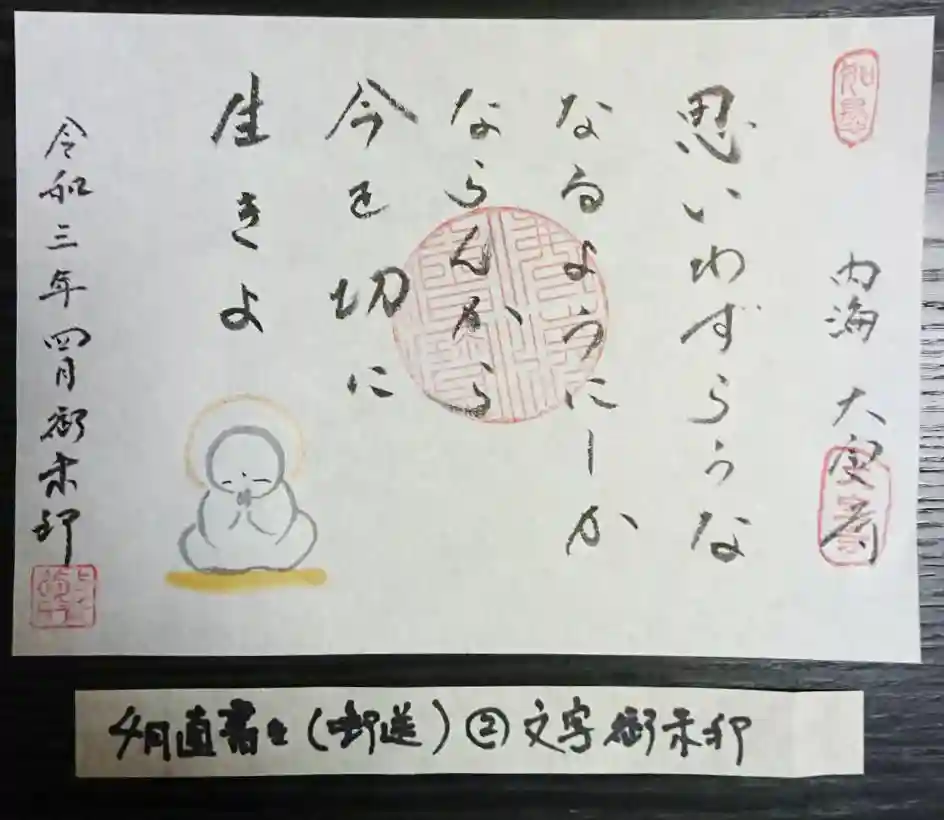 内海
思いわずらうな
なるようにしか
ならんから
今を切に
生きよ
令和三年四月御朱印
4月直書き(郵送)②文字御朱印